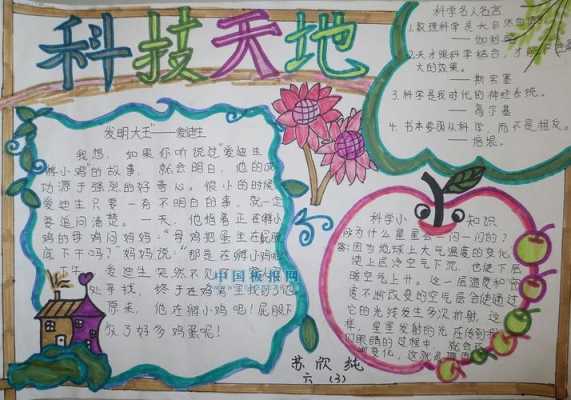 科技天地
发明大王"——爱迪生
我想,如果你听说过"爱迪生
孵小鸡"的故事,就会明白,他的成
功源于强烈的好奇心。很小的时候
爱迪生只要一有不明白的事,就一定
要追问清楚。一天,他指着正在孵小
鸡的母鸡问妈妈:"母鸡把蛋坐在屁股
底下干吗?"妈妈说:"那是在孵小鸡呢
爱迪生突然不见了
处寻找,终于在鸡窝里找到了他
原来,他在孵小鸡呢!屁股下
放了好多鸡蛋呢!
中国板报网
科学名人名言
1.数理科学是大自然
——伽利略
2.天才跟科学结合,才能
大的效果。
——斯宾塞
3.科学是我时代的神经系统。
——高尔基
4.书本要跟从科学,而不是相反。
——培根。
科学小知识
为什么星星会一闪一闪的?
答:因为地球上大气温度的变化,
使上层冷空气下沉,也使下层
暖空气上升。这一层温度和密
度不断改变的空气层会使通过
它的光线发生多次折射,这
样,星星发射的光在传到我
们眼睛的过程中,就会
变化,这就
苏欣纯
六(3)